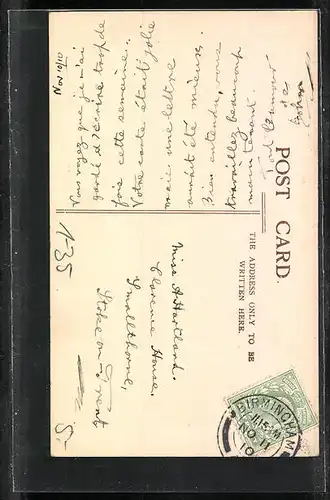 Nov 10/10
Vous voyez que je n'ai
garde d'écrire trop de
fois cette semaine.
Votre carte était jolie
mais une lettre
aurait été mieux.
Bien entendu, vous
travaillez beaucoup
maintenant.
POST CARD.
THE ADDRESS ONLY TO BE
WRITTEN HERE.
Miss A Hartland.
Clarence House,
Smallthorne,
Stoke on Trent
1-35
BIRMINGHAM
NO 11
10